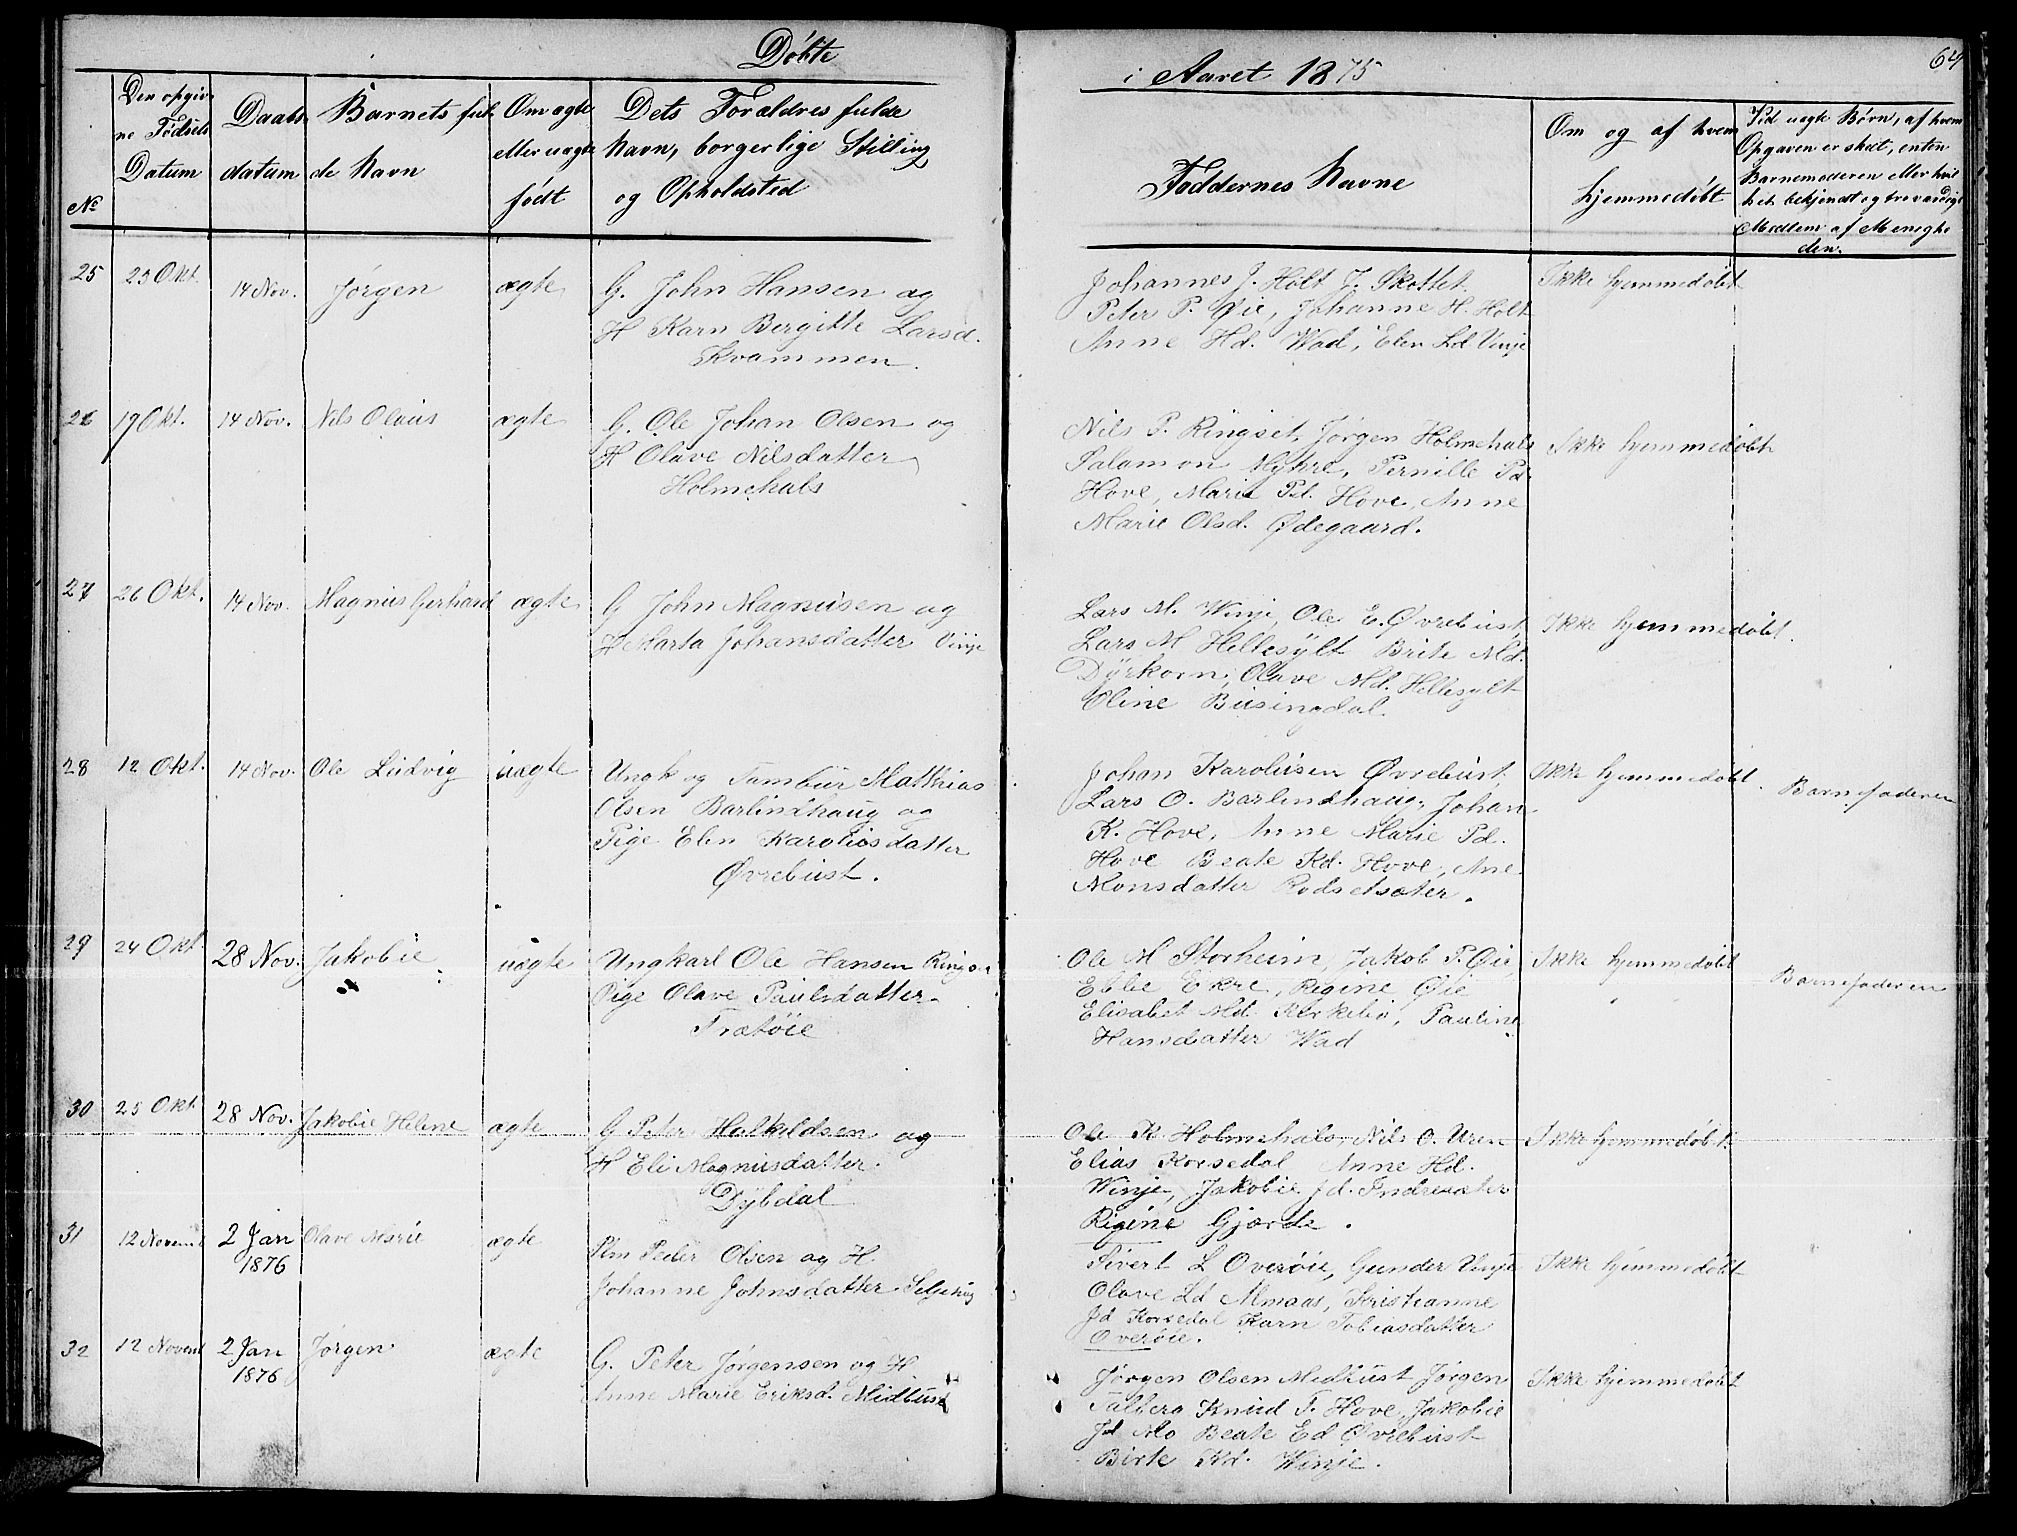 Døbte
i Aaret 1875
64
No
Den opgivne Fødsels Datum
Daabsdatum
Barnets fulde Navn
Om ægte eller uægte født
Dets Forældres fulde Navn, borgerlige Stilling og Opholdsted
Faddernes Navne
Om og af hvem hjemmedøbt
Ved uægte Børn, af hvem Opgaven er skeet, enten Barnemoderen eller hvilket bekjendt og troværdigt Medlem af Menigheden.
25 23 Okt. 14 Nov. Jørgen ægte G. John Hansen og
H Karn Bergitte Larsd.
Kvammen.
Johannes J. Holt J. Skottet
Peter P. Øie, Johanne H. Holt
Anne Hd. Wad, Elen Ld Vinje
Ikke hjemmedøbt
26 19 Okt. 14 Nov. Nils Olaus ægte G. Ole Johan Olsen og
H Olave Nilsdatter
Holmehals
Nils P. Ringset, Jørgen Holmehals
Salamon Myhre, Pernille Pd.
Hove, Marie Pd. Hove, Anne
Marie Olsd. Ødegaard.
Ikke hjemmedøbt
27 26 Okt. 14 Nov. Magnus Gerhard ægte G John Magnusen og
H Marta Johansdatter Vinje
Lars M. Winje, Ole E. Øvrebust,
Lars M Hellesylt Brite Md.
Dyrkorn, Olave Md. Hellesylt
Oline Busingdal.
Ikke hjemmedøbt.
28 12 Okt. 14 Nov. Ole Ludvig uægte Ungk og Tambur Matthias
Olsen Barlindhaug og
Pige Elen Karoliusdatter
Øvrebust.
Johan Karolusen Øvrebust,
Lars O. Barlindhaug, Johan
K. Hove, Anne Marie Pd.
Hove Beate Kd. Hove, Ane
Monsdatter Rodsetsæter.
Ikke hjemmedøbt.
Barnefaderen
29 24 Okt. 28 Nov. Jakobie uægte Ungkarl Ole Hansen Ring
Pige Olave Paulsdatter
Trætøie
Ole M Storheim, Jakob P. Øie,
Ebbe Ekre, Regine Øie
Elisabet Md. Kirkebø, Pauline
Hansdatter Wad
Ikke hjemmedøbt
Barnefaderen
30 25 Okt. 28 Nov. Jakobie Helene ægte G Peter Halkildsen og
H Eli Magnusdatter.
Dybdal
Ole K Holmehals, Nils O. Uren
Elias Korsedal Anne Hd.
Winje, Jakobie Jd. Indresæter
Regine Gjærde.
Ikke hjemmedøbt.
31 12 Novemb 2 Jan 1876 Olave Marie ægte Peder Olsen og H.
Johanne Johnsdatter
Sivert L Overøie, Gunder Vinje
Olave Ld Almaas, Kristianne
Jd Korsedal Karn Tobiasdatter
Overøie.
Ikke hjemmedøbt
32 12 Novemb 2 Jan 1876 Jørgen ægte G. Peter Jørgensen og H
Anne Marie Eriksd. Midbust
Jørgen Olsen Midbust Jørgen
Talberg Knud T. Hove, Jakobie
Jd Mo Beate Ed Øvrebust
Birte Kd. Winje.
Ikke hjemmedøbt